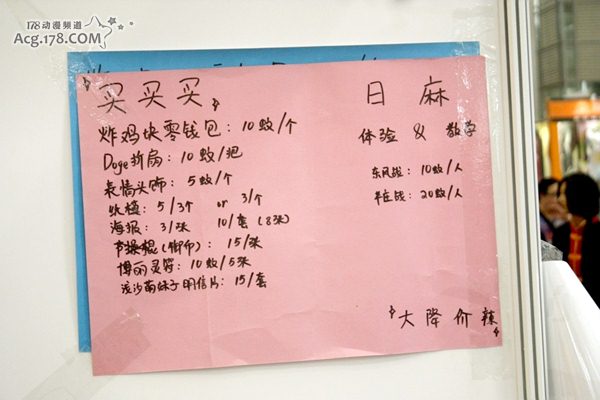 178动漫频道
Acg.178.COM
买买买
炸鸡块零钱包：10蚊/个
Doge折扇：10蚊/把
表情头饰：5蚊/个
纸模：5/3个 or 3/个
海报：3/张 10/套（8张）
节操棍（御币）：15/张
博丽灵符：10蚊/5张
流沙萌妹子明信片：15/套
日麻
体验 & 教学
东风战：10蚊/人
半庄战：20蚊/人
大降价辣